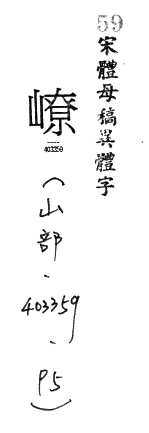 59
宋體母稿異體字
嶛
403359
(山部-403359-P5)